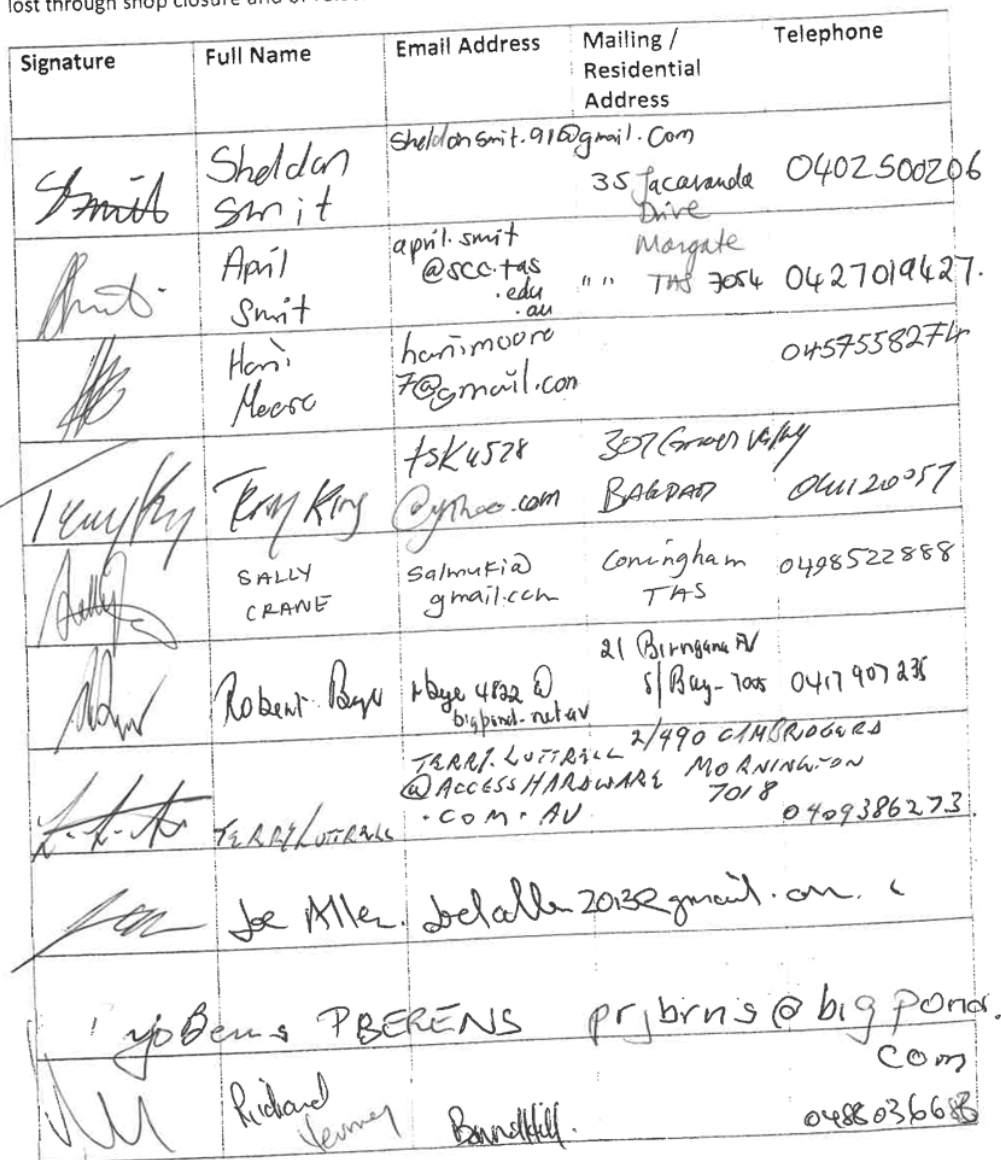 lost through shop closure and or
Signature Full Name Email Address Mailing / Residential Address Telephone
Smit Sheldon Smit Sheldonsmit.91@gmail.com 35 Jacaranda Drive 0402500206
April Smit april.smit@scc.tas.edu.au " " Margate TAS 7054 0427019427.
Hani harrimoore7@gmail.con 0457558274
Terry King Terry King tsk4528@yahoo.com 307 Valley BAGDAD
SALLY CRANE salmukia@gmail.com Coningham TAS 0498522888
Robert 4832@bigpond.net.au 21 Av S/Bay-7005 0417907235
TERRY LUTTRELL TERRY.LUTTRELL@ACCESSHARDWARE.COM.AU 2/490 CAMBRIDGE RD MORNINGTON 7018 0409386273.
Joe Allen. 2013@gmail.com.
PBERENS prjbrns@bigpond.com
Richard 048803668